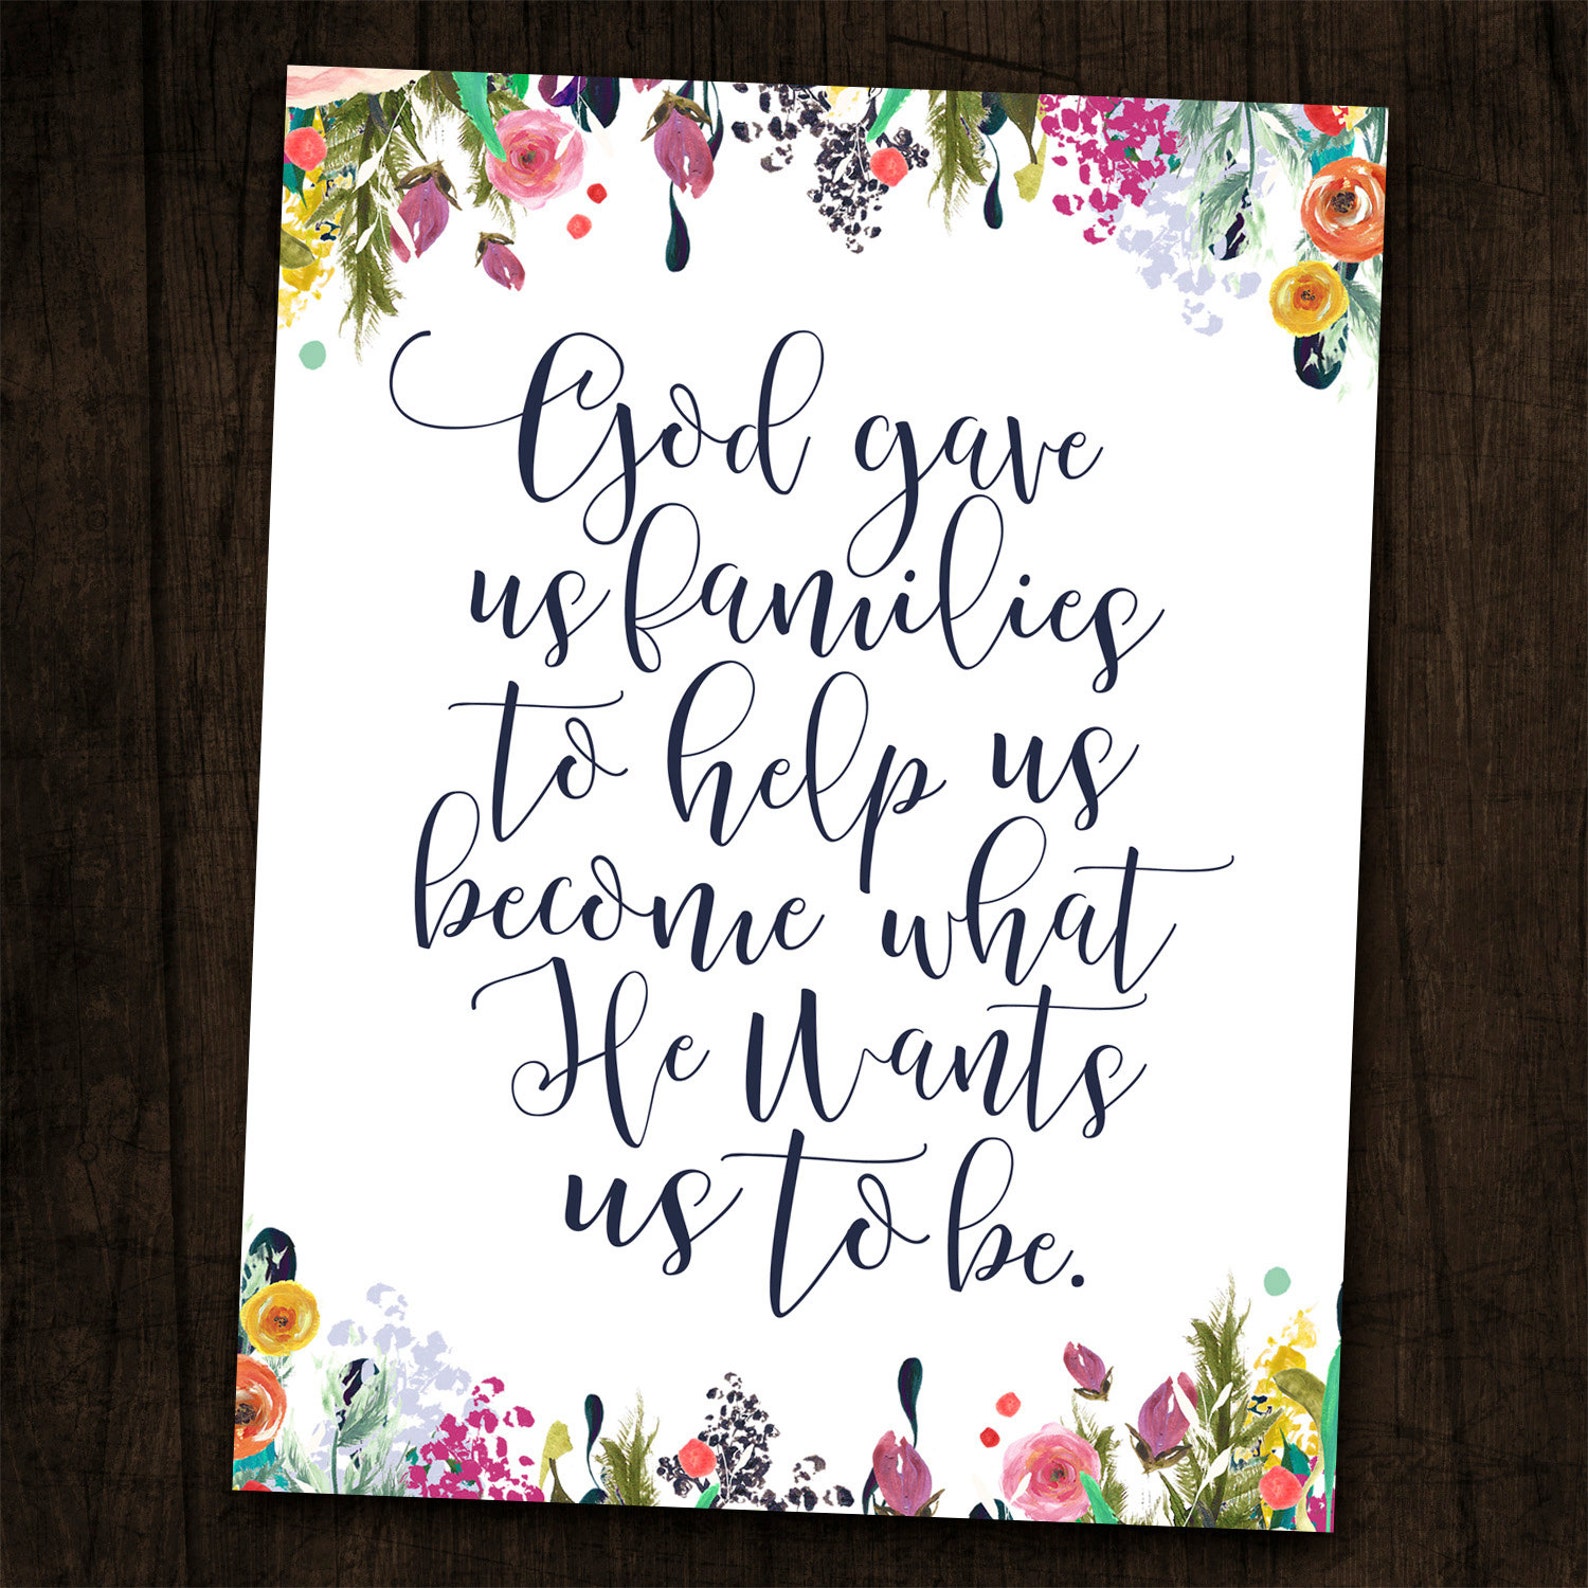 God gave
us families
to help us
become what
He Wants
us to be.